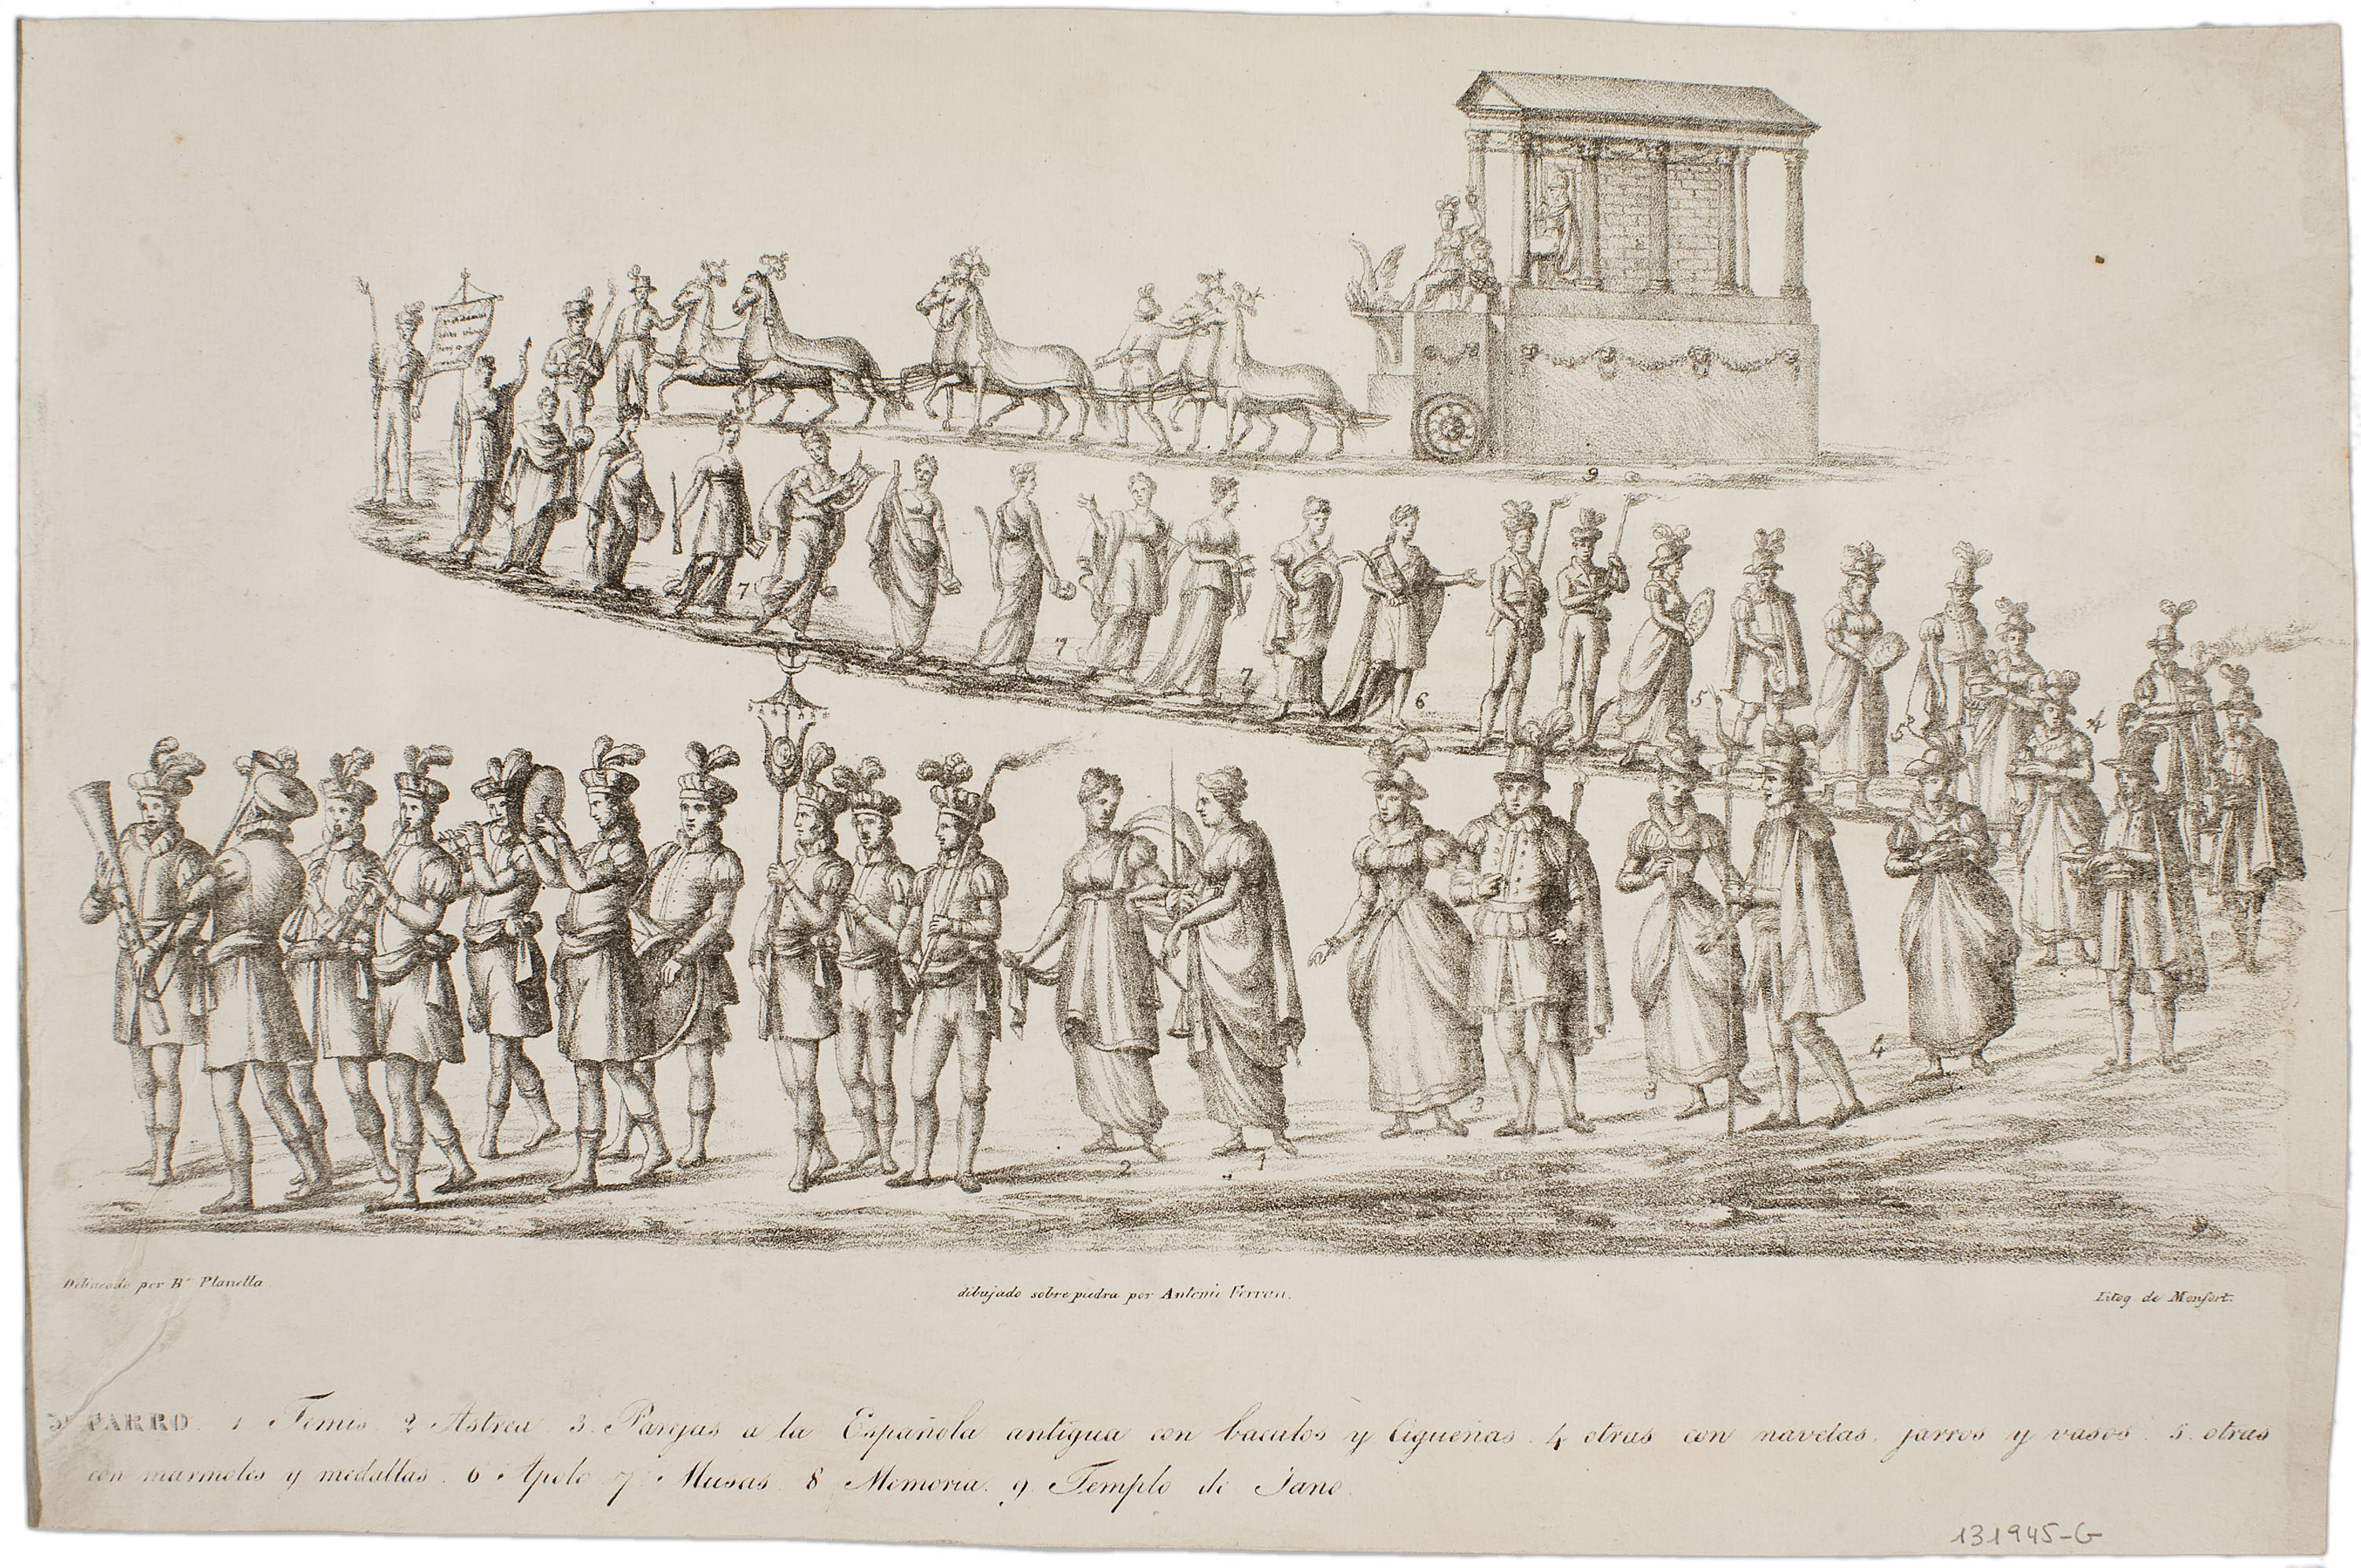 9
7
7
7
6
5
4
3
3
4
2
1
Delineado por Bᵃ Planella
dibujado sobre piedra por Antonio Ferran.
Litog de Monfort.
3ʳ CARRO. 1 Temis. 2 Astrea. 3. Parejas a la Española antigua con baculos y Cigueñas. 4 otras con navetas, jarros y vasos. 5. otras
con marmoles y medallas. 6 Apolo 7 Musas 8 Memoria. 9. Templo de Jano.
131945-G